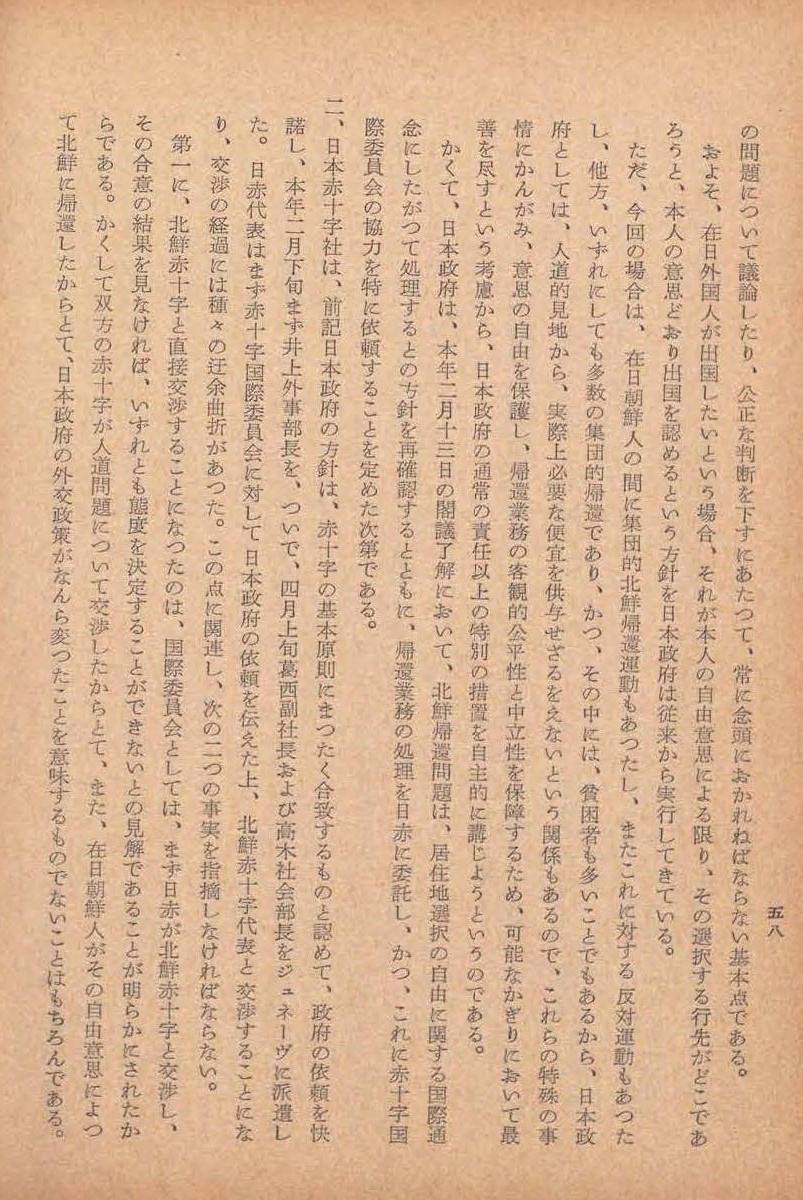 五八
の問題について議論したり、公正な判断を下すにあたつて、常に念頭におかれねばならない基本点である。
およそ、在日外国人が出国したいという場合、それが本人の自由意思による限り、その選択する行先がどこであ
ろうと、本人の意思どおり出国を認めるという方針を日本政府は従来から実行してきている。
ただ、今回の場合は、在日朝鮮人の間に集団的北鮮帰還運動もあつたし、またこれに対する反対運動もあつた
し、他方、いずれにしても多数の集団的帰還であり、かつ、その中には、貧困者も多いことでもあるから、日本政
府としては、人道的見地から、実際上必要な便宜を供与せざるをえないという関係もあるので、これらの特殊の事
情にかんがみ、意思の自由を保護し、帰還業務の客観的公平性と中立性を保障するため、可能なかぎりにおいて最
善を尽すという考慮から、日本政府の通常の責任以上の特別の措置を自主的に講じようというのである。
かくて、日本政府は、本年二月十三日の閣議了解において、北鮮帰還問題は、居住地選択の自由に関する国際通
念にしたがつて処理するとの方針を再確認するとともに、帰還業務の処理を日赤に委託し、かつ、これに赤十字国
際委員会の協力を特に依頼することを定めた次第である。
二、日本赤十字社は、前記日本政府の方針は、赤十字の基本原則にまつたく合致するものと認めて、政府の依頼を快
諾し、本年二月下旬まず井上外事部長を、ついで、四月上旬葛西副社長および高木社会部長をジュネーヴに派遣し
た。日赤代表はまず赤十字国際委員会に対して日本政府の依頼を伝えた上、北鮮赤十字代表と交渉することにな
り、交渉の経過には種々の迂余曲折があつた。この点に関連し、次の二つの事実を指摘しなければならない。
第一に、北鮮赤十字と直接交渉することになつたのは、国際委員会としては、まず日赤が北鮮赤十字と交渉し、
その合意の結果を見なければ、いずれとも態度を決定することができないとの見解であることが明らかにされたか
らである。かくして双方の赤十字が人道問題について交渉したからとて、また、在日朝鮮人がその自由意思によつ
て北鮮に帰還したからとて、日本政府の外交政策がなんら変つたことを意味するものでないことはもちろんである。